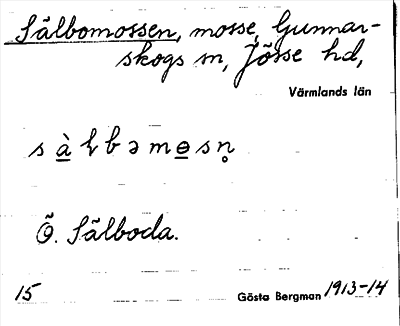 Sälbomossen, mosse, Gunnar-
skogs sn, Jösse hd,
Värmlands län
s à̱ ɽ b ə m ɵ̱ s n̥
Ö. Sälboda.
15 Gösta Bergman 1913-14